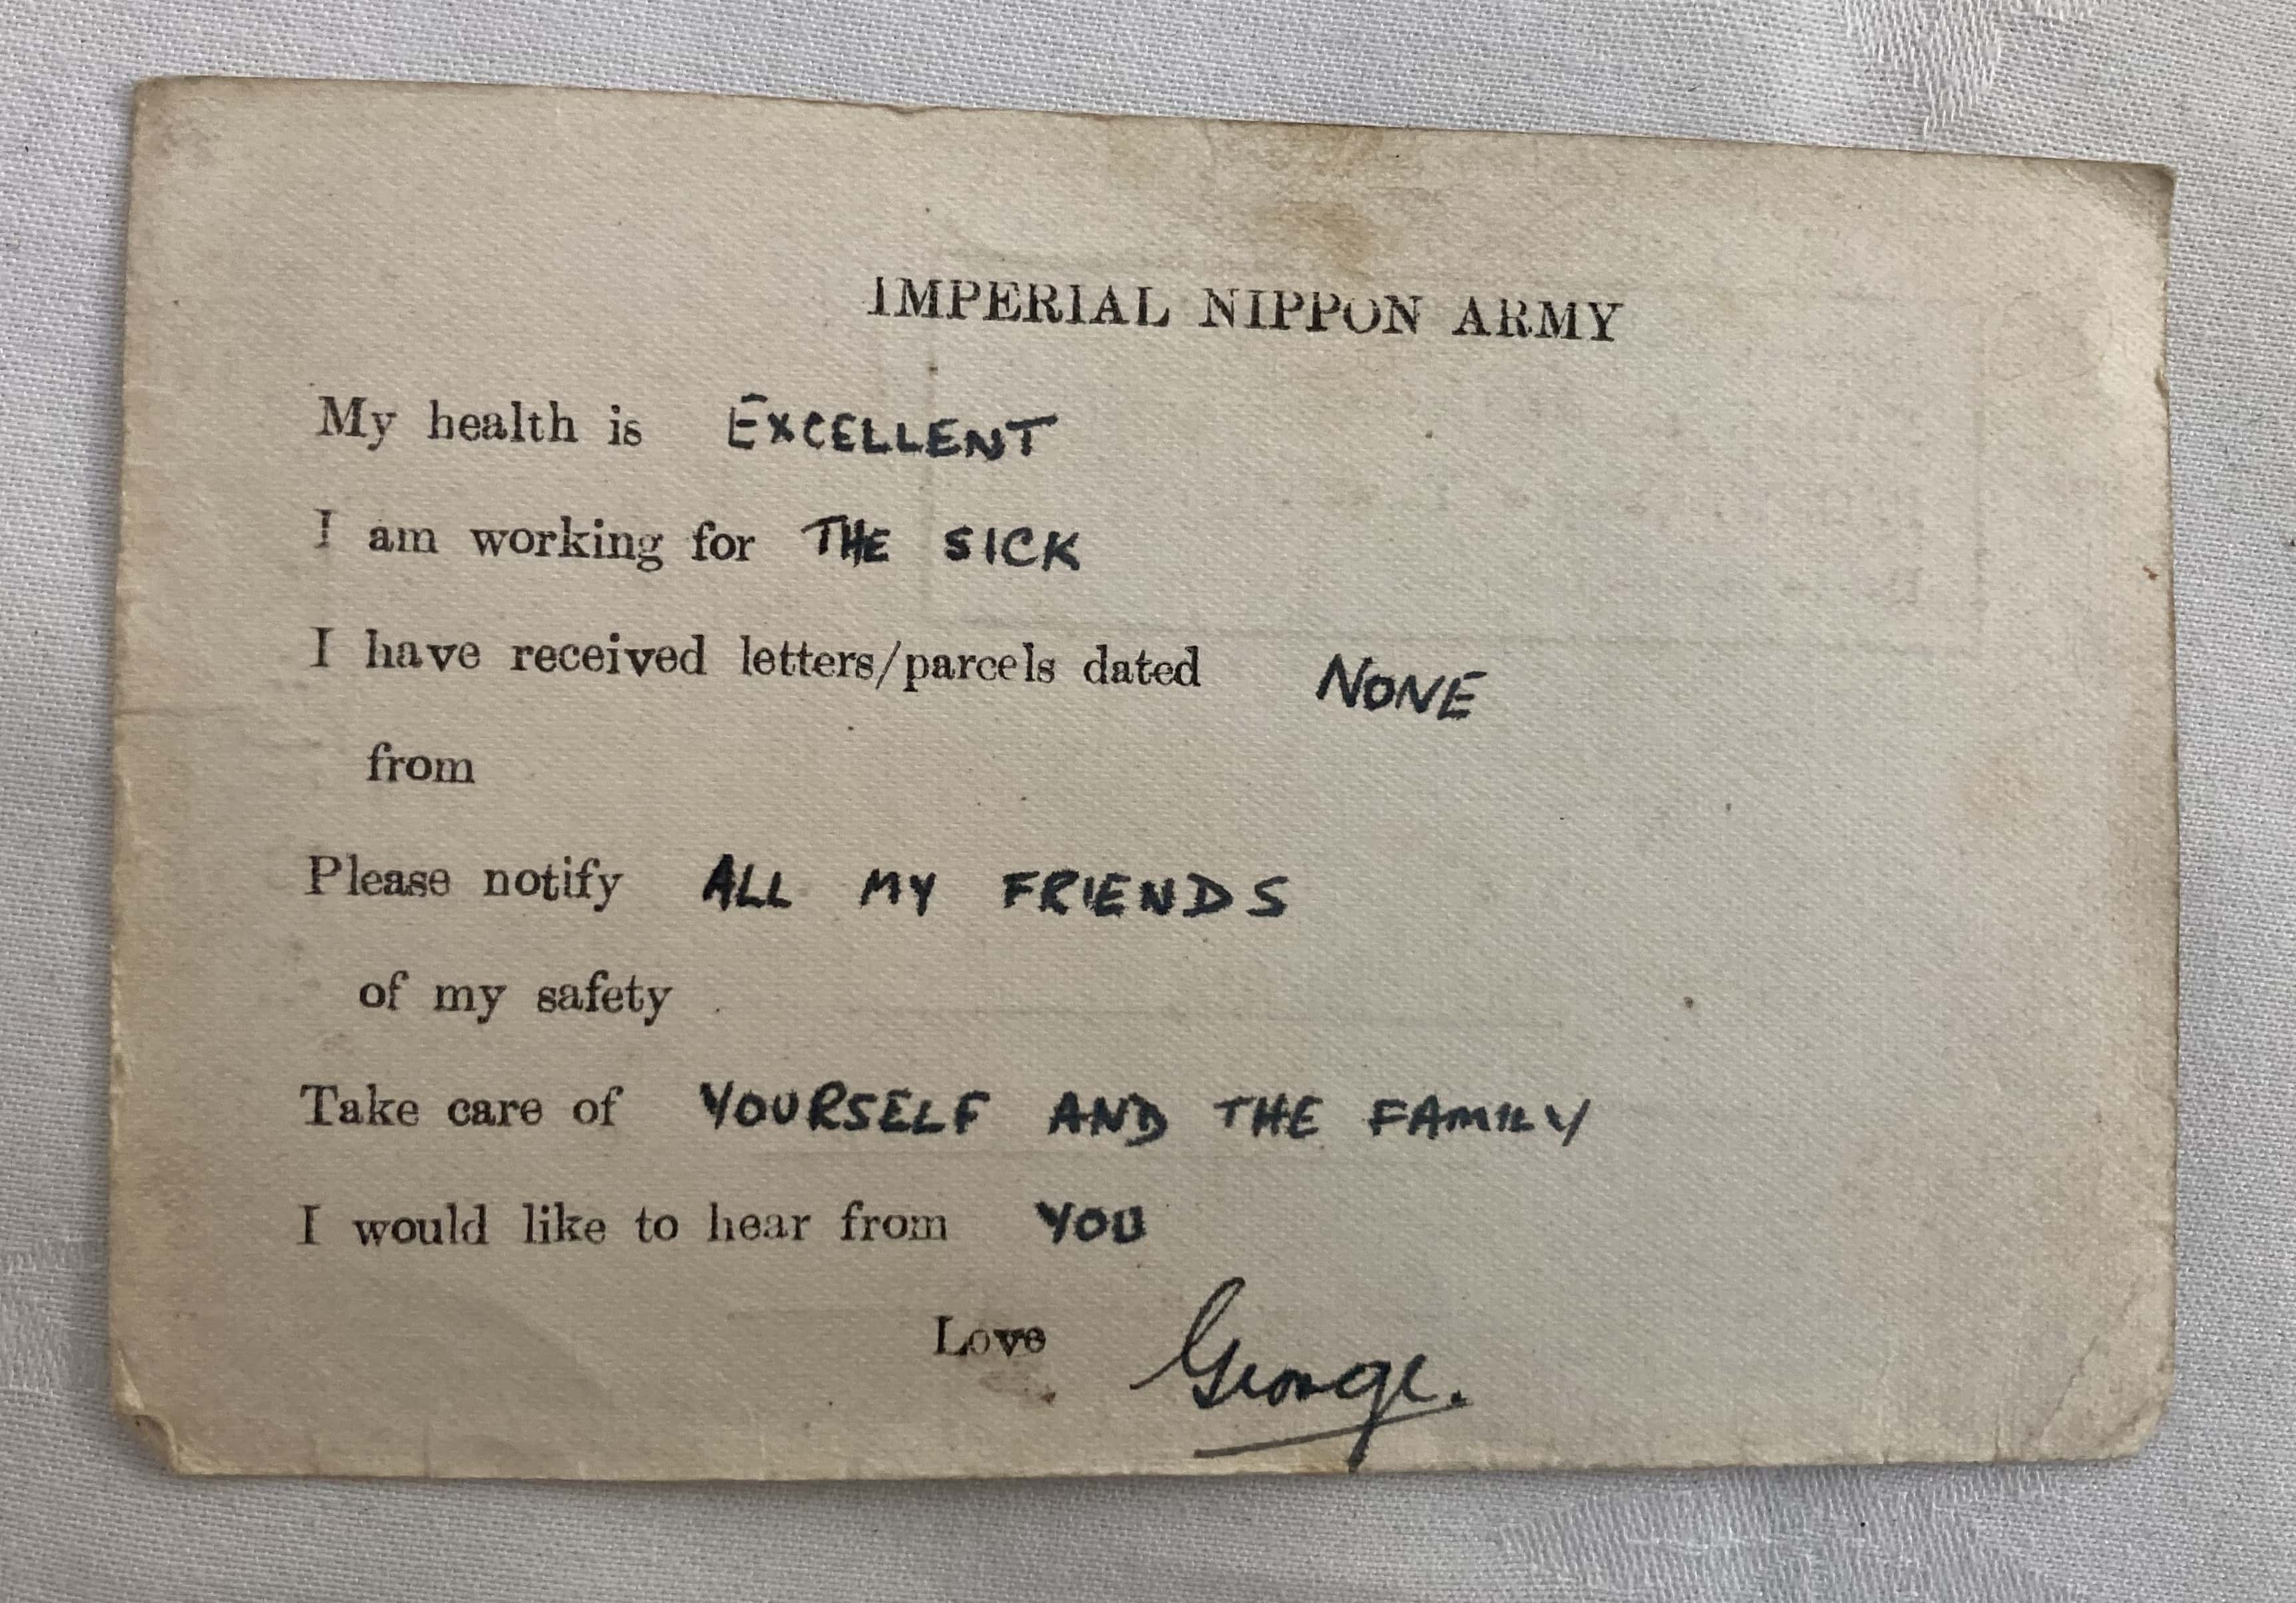 IMPERIAL NIPPON ARMY
My health is EXCELLENT
I am working for THE SICK
I have received letters/parcels dated NONE
from
Please notify ALL MY FRIENDS
of my safety .
Take care of YOURSELF AND THE FAMILY
I would like to hear from YOU
Love George.